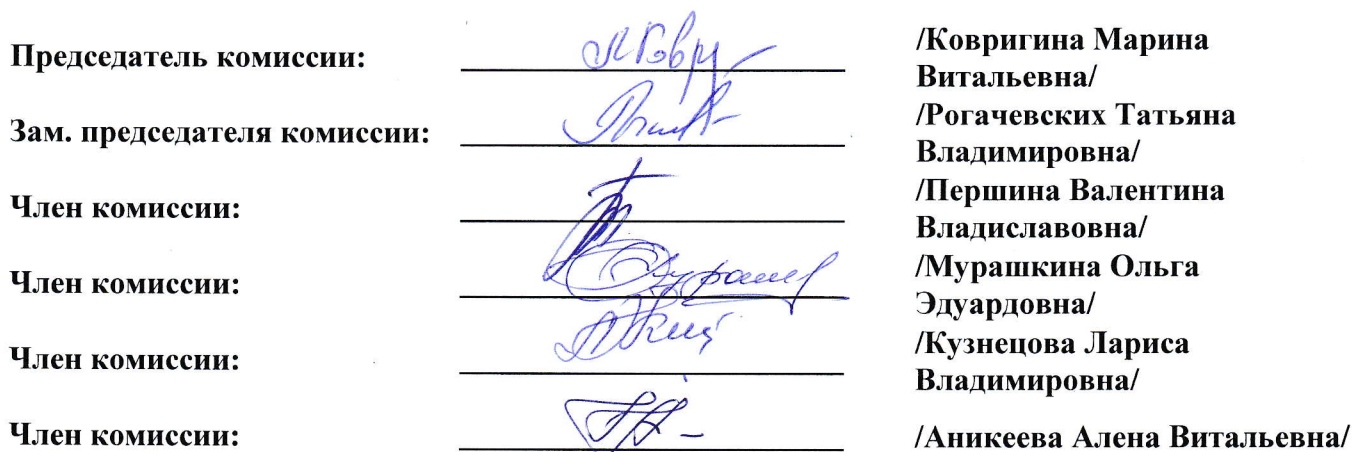 Председатель комиссии: /Ковригина Марина
Витальевна/
Зам. председателя комиссии: /Рогачевских Татьяна
Владимировна/
Член комиссии: /Першина Валентина
Владиславовна/
Член комиссии: /Мурашкина Ольга
Эдуардовна/
Член комиссии: /Кузнецова Лариса
Владимировна/
Член комиссии: /Аникеева Алена Витальевна/